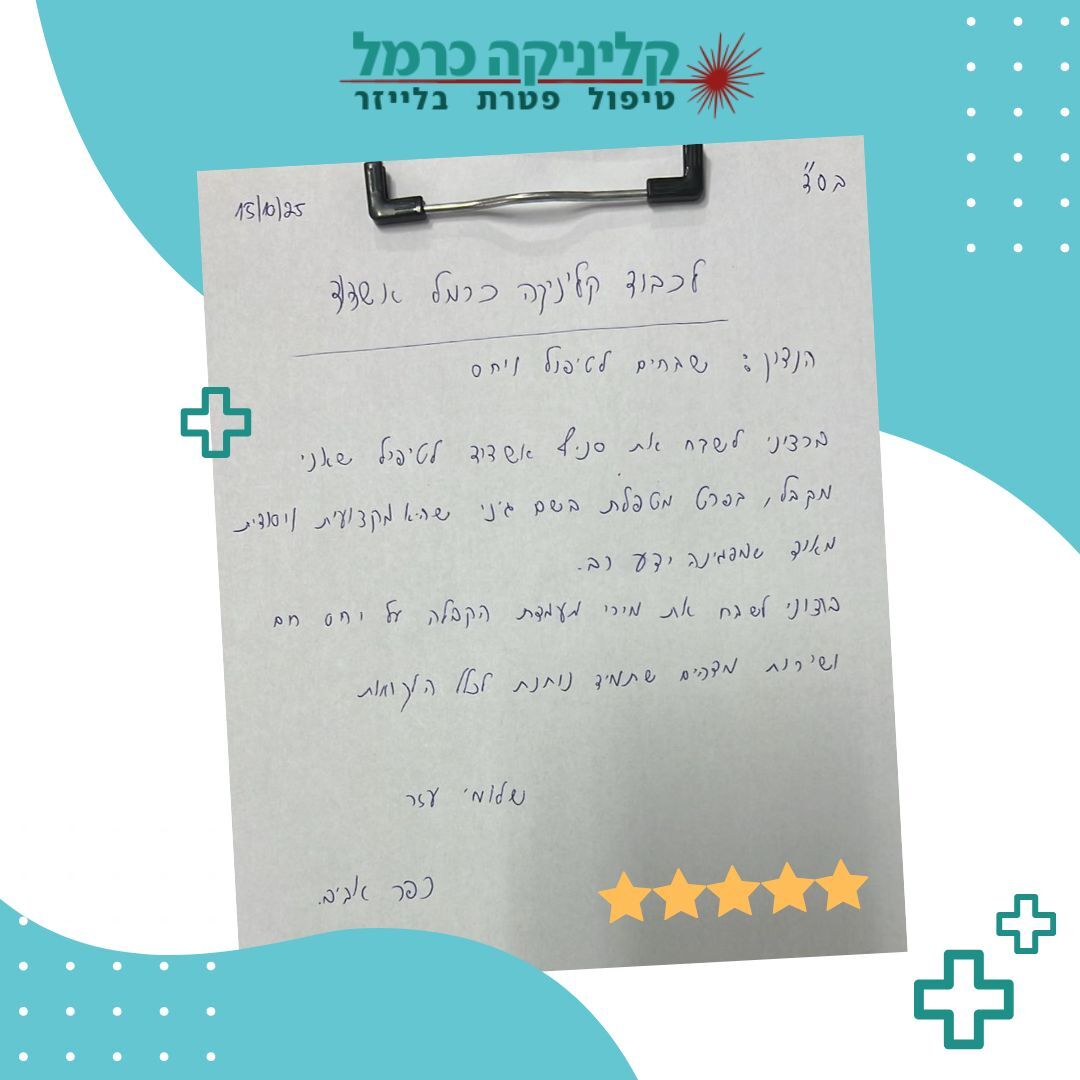 קליניקה כרמל
טיפול פטרת בלייזר
בס"ד
15/10/25
לכבוד קליניקה כרמל אשדוד
הנדון: שבחים לטיפול ויחס
ברצוני לשבח את סניף אשדוד לטיפול שאני
מקבל, בפרט מטפלת בשם ג'ני שהיא מקצועית ויסודית
מאוד שמפגינה ידע רב.
ברצוני לשבח את מירי מעמדת הקבלה על יחס חם
ושירות מדהים שתמיד נותנת לכלל הלקוחות
שלומי עזר
כפר אביב.